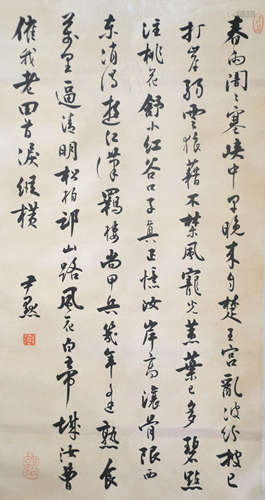 春雨闇〻塞峽中早晚來自楚王宮亂波分披已
打岸弱雲狼藉不禁風寵光蕙葉與多碧點
注桃花舒小紅谷口子真正憶汝岸高瀼滑限西
東消渴遊江漢羈棲尚甲兵幾年逢熟食
萬里逼清明松柏邙山路風花白帝城汝曹
催我老回首淚縱橫
尹默